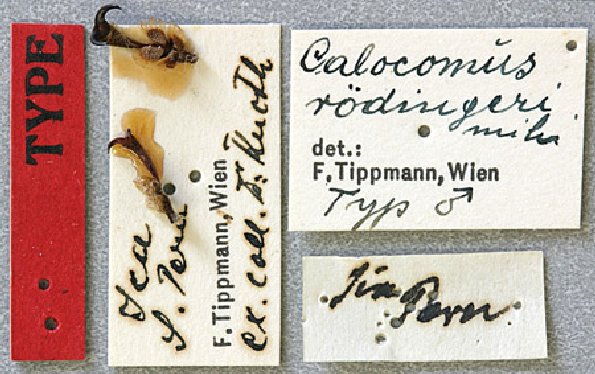 TYPE
Ica
S. Peru
F. Tippmann, Wien
ex. coll. Dr.
Calocomus
rödingeri
mihi
det.:
F. Tippmann, Wien
Typ ♂
Peru